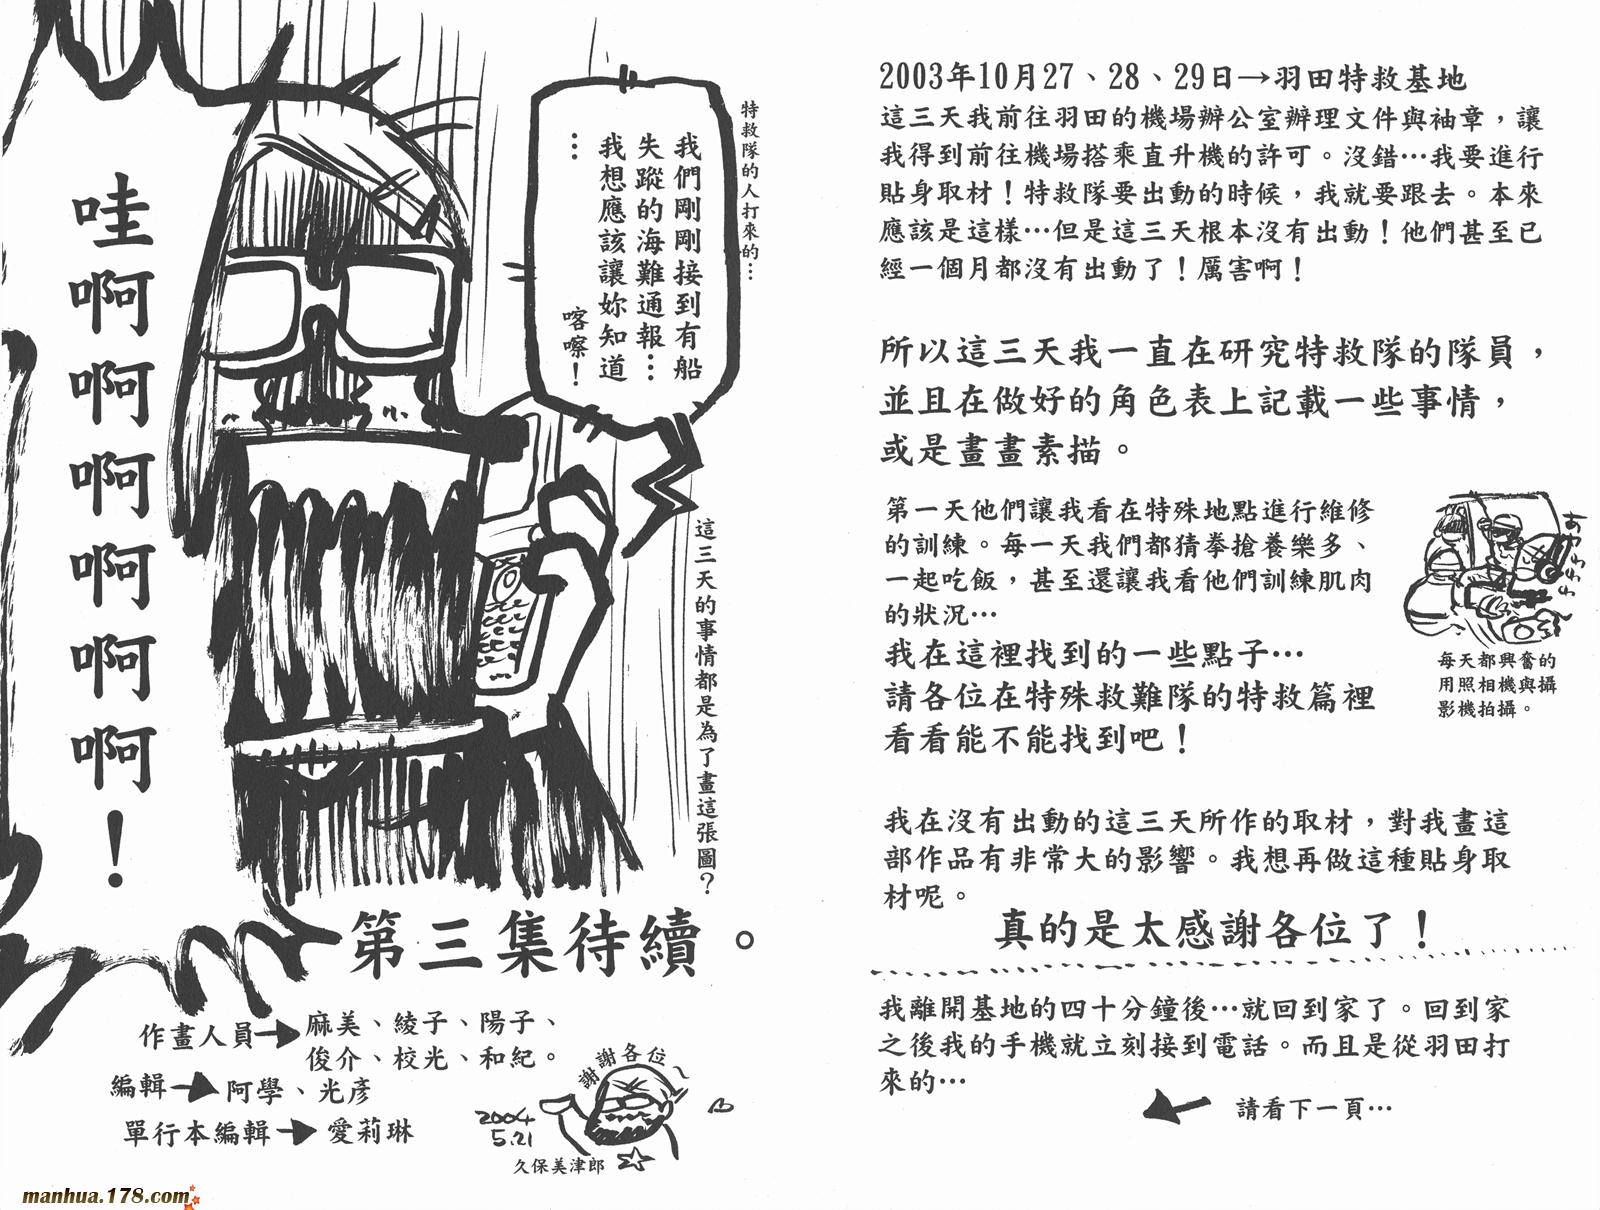 2003年10月27、28、29日→羽田特救基地
這三天我前往羽田的機場辦公室辦理文件與袖章，讓
我得到前往機場搭乘直升機的許可。沒錯…我要進行
貼身取材！特救隊要出動的時候，我就要跟去。本來
應該是這樣…但是這三天根本沒有出動！他們甚至已
經一個月都沒有出動了！厲害啊！
所以這三天我一直在研究特救隊的隊員，
並且在做好的角色表上記載一些事情，
或是畫畫素描。
第一天他們讓我看在特殊地點進行維修
的訓練。每一天我們都猜拳搶養樂多、
一起吃飯，甚至還讓我看他們訓練肌肉
的狀況…
我在這裡找到的一些點子…
請各位在特殊救難隊的特救篇裡
看看能不能找到吧！
每天都興奮的
用照相機與攝
影機拍攝。
我在沒有出動的這三天所作的取材，對我畫這
部作品有非常大的影響。我想再做這種貼身取
材呢。
真的是太感謝各位了！
我離開基地的四十分鐘後…就回到家了。回到家
之後我的手機就立刻接到電話。而且是從羽田打
來的…
請看下一頁…
特救隊的人打來的…
我們剛剛接到有船
失蹤的海難通報…
我想應該讓妳知道
…
喀嚓！
這三天的事情都是為了畫這張圖？
哇啊啊啊啊啊啊！
第三集待續。
作畫人員→麻美、綾子、陽子、
俊介、校光、和紀。
編輯→阿學、光彥
單行本編輯→愛莉琳
謝謝各位~
2004
5.21
久保美津郎
manhua.178.com